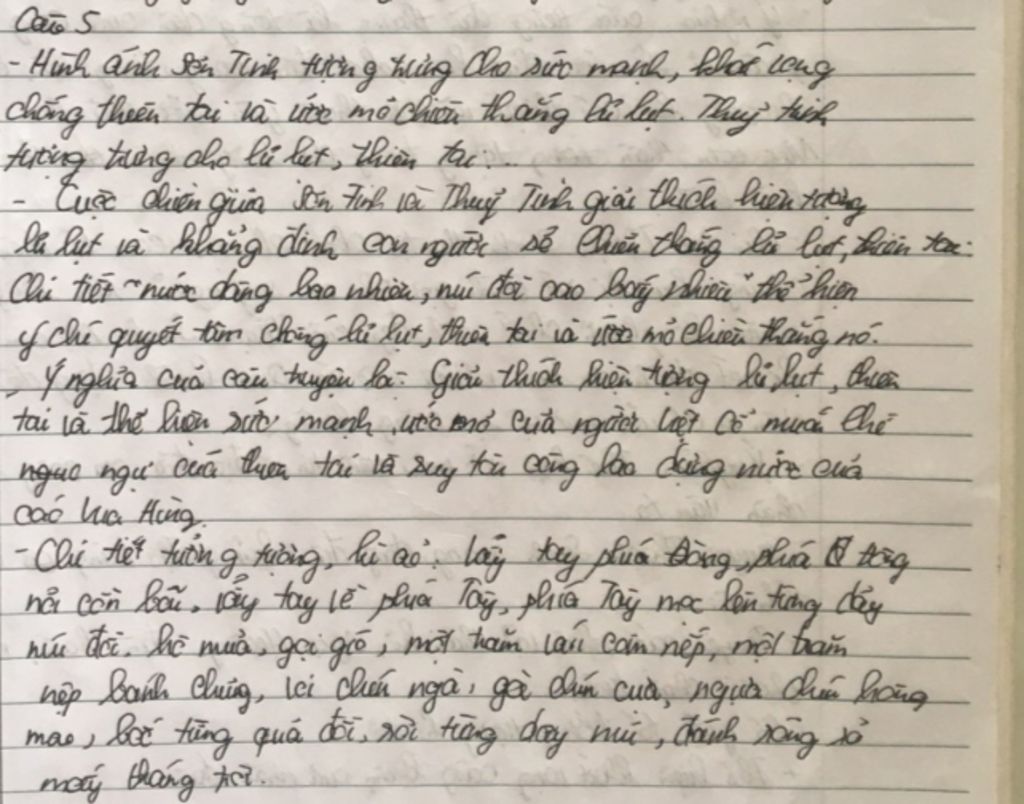 Câu 5
- Hình ảnh Sơn Tinh tượng trưng cho sức mạnh, khát vọng
chống thiên tai và ước mơ chiến thắng lũ lụt. Thuỷ tinh
tượng trưng cho lũ lụt, thiên tai...
- Cuộc chiến giữa Sơn Tinh và Thuỷ Tinh giải thích hiện tượng
lũ lụt và khẳng định con người sẽ chiến thắng lũ lụt, thiên tai.
Chi tiết "nước dâng bao nhiêu, núi đồi cao bấy nhiêu" thể hiện
ý chí quyết tâm chống lũ lụt, thiên tai và ước mơ chiến thắng nó.
- Ý nghĩa của câu truyện là: Giải thích hiện tượng lũ lụt, thiên
tai và thể hiện sức mạnh, ước mơ của người Việt Cổ muốn chế
ngục ngự của thiên tai và suy tôn công lao dựng nước của
các vua Hùng.
- Chi tiết tưởng tượng, kì ảo: Vẫy tay phía Đông, phía đông
nổi cồn bãi, vẫy tay về phía Tây, phía Tây mọc lên từng dãy
núi đồi. hô mưa, gọi gió, một trăm ván cơm nếp, một trăm
nệp bánh chưng, voi chín ngà, gà chín cựa, ngựa chín hồng
mao, bốc từng quả đồi, rời từng dãy núi, đánh ròng rã
mấy tháng trời.